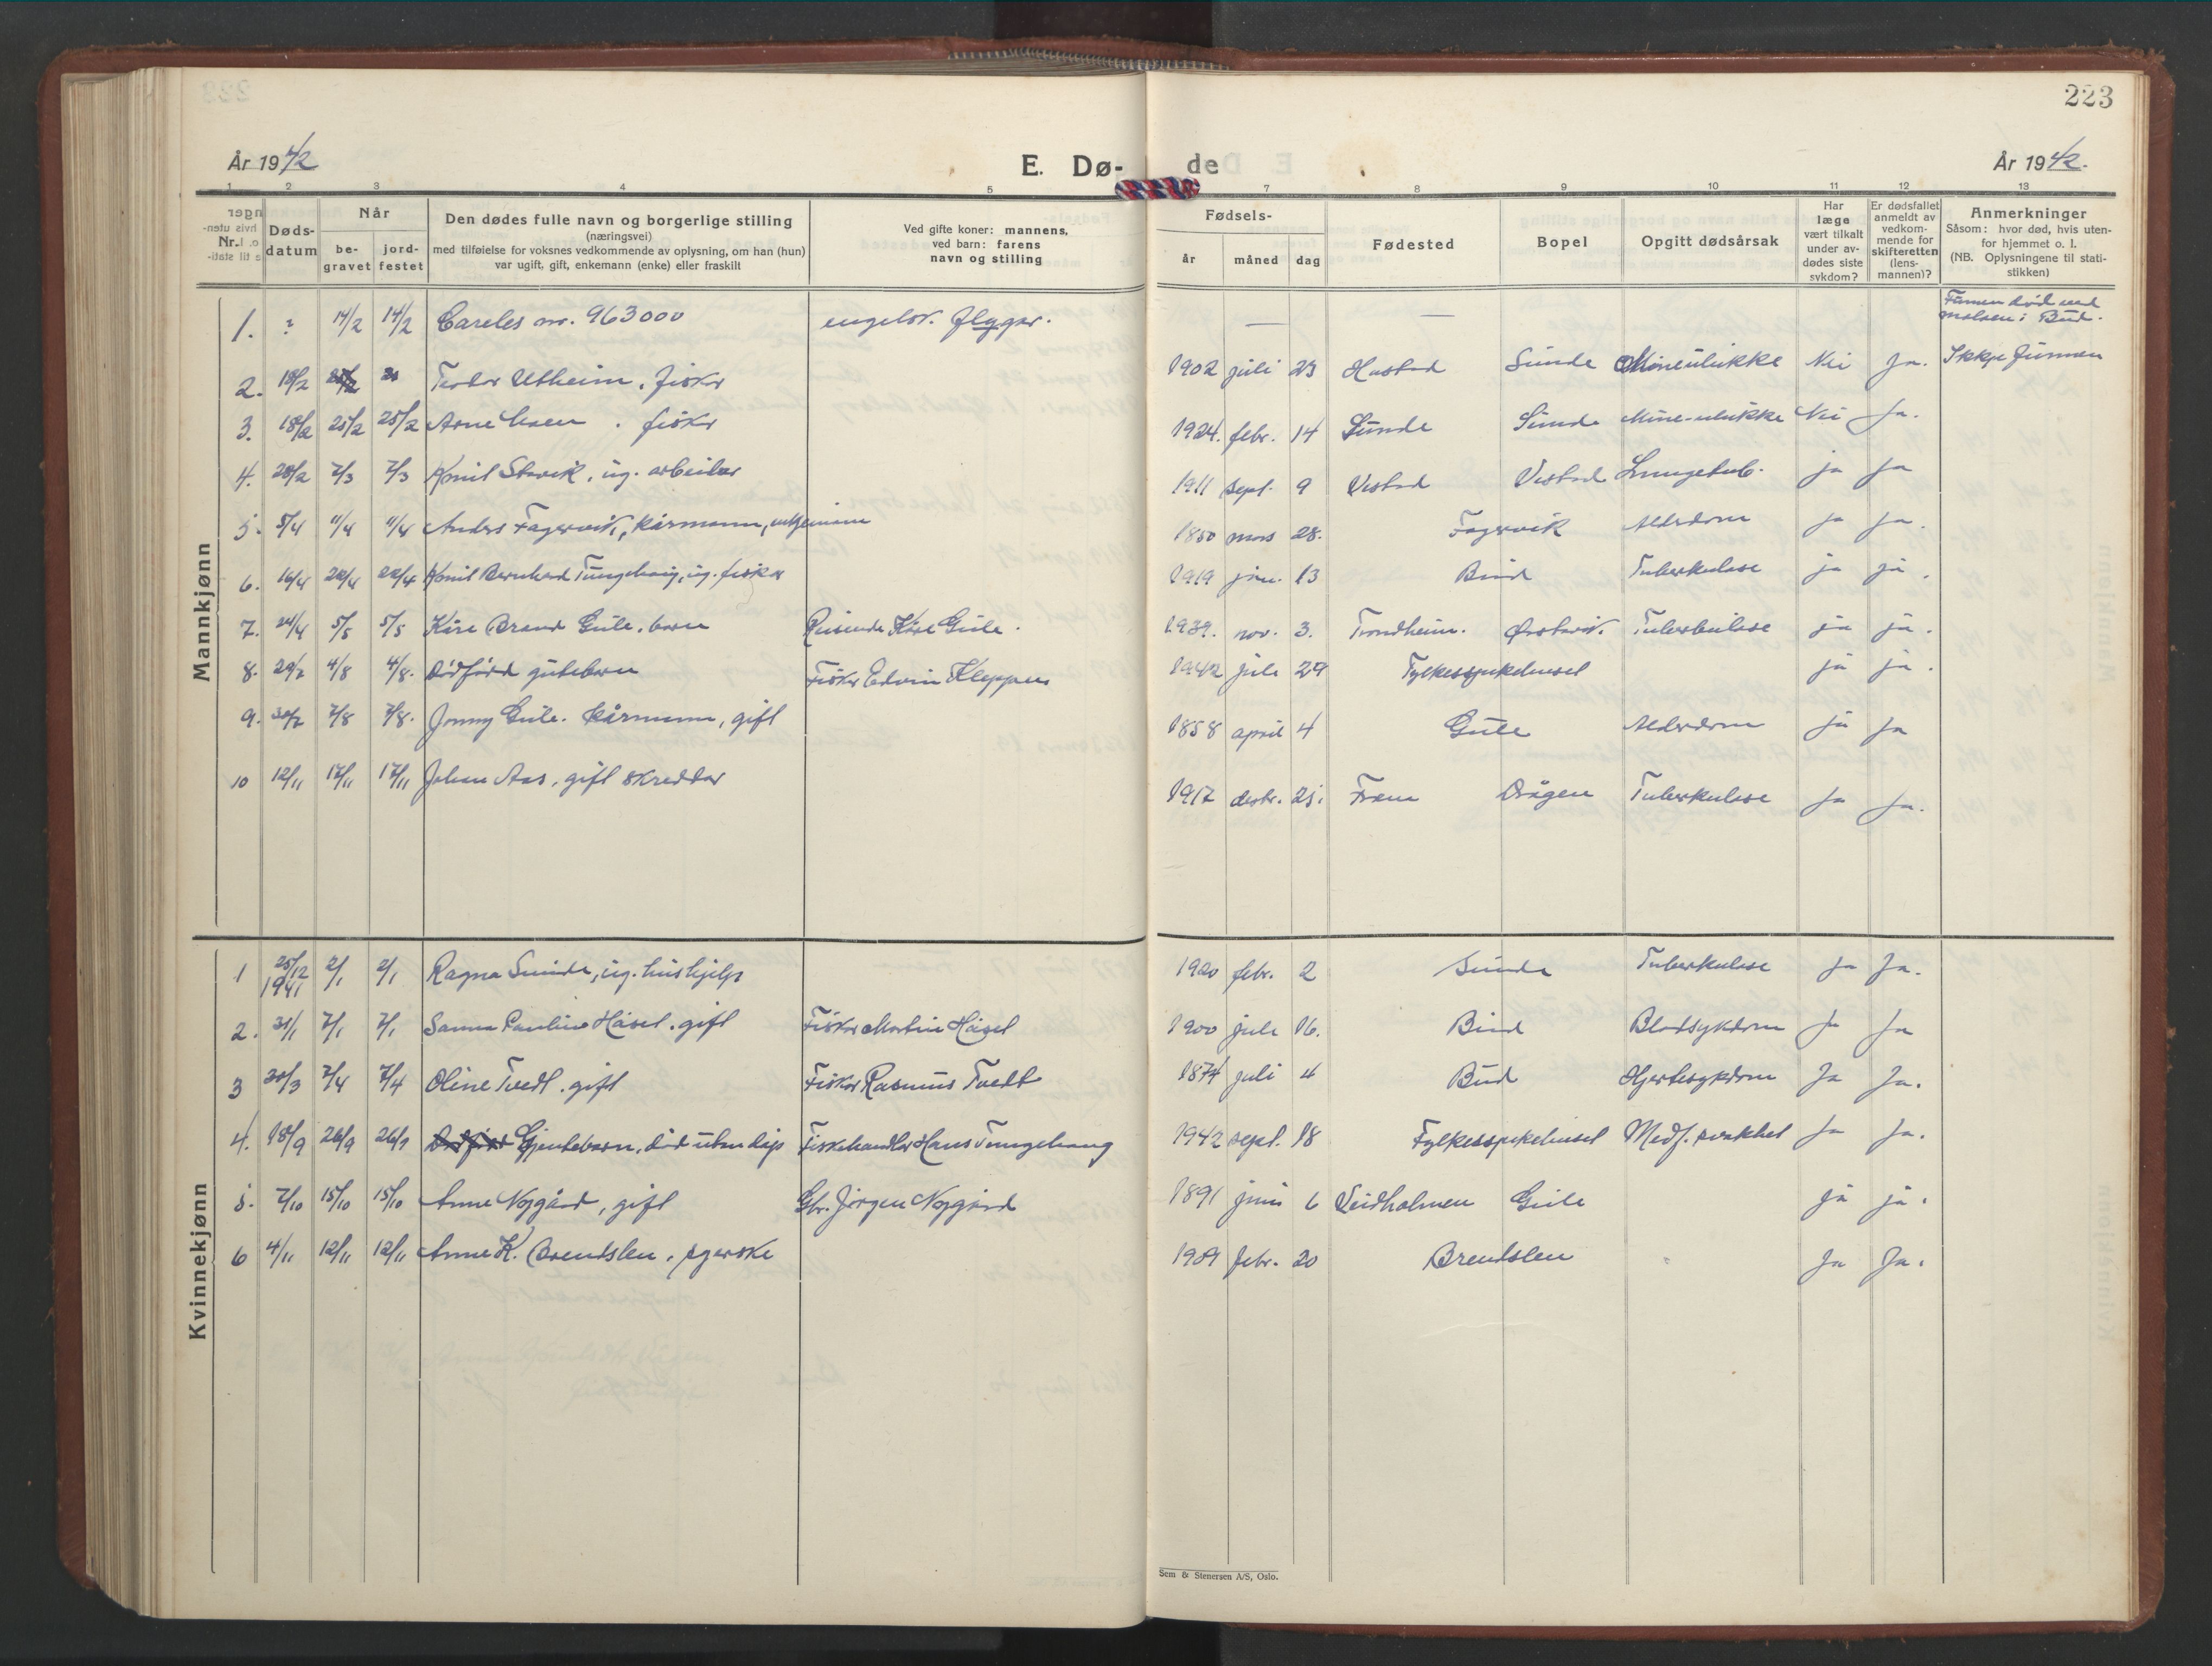 223
År 1942
E. Dø-
de
År 1942.
1 2 3 4 5
7 8 9 10 11 12 13
Nr.
Døds-
datum
Når
be-
gravet
jord-
festet
Den dødes fulle navn og borgerlige stilling
(næringsvei)
med tilføielse for voksnes vedkommende av oplysning, om han (hun)
var ugift, gift, enkemann (enke) eller fraskilt
Ved gifte koner: mannens,
ved barn: farens
navn og stilling
Fødsels-
år måned dag
Fødested
Bopel
Opgitt dødsårsak
Har
læge
vært tilkalt
under av-
dødes siste
sykdom?
Er dødsfallet
anmeldt av
vedkom-
mende for
skifteretten
(lens-
mannen)?
Anmerkninger
Såsom: hvor død, hvis uten-
for hjemmet o. l.
(NB. Oplysningene til stati-
stikken)
Mannkjønn
1. ? 14/2 14/2 Careles nr. 963000 engelsk flyger. — — Funnen død ved
moloen i Bud.
2. 18/2 Teodor Utheim, fisker 1902 juli 23 Hustad Sunde Mineulukke Nei Ja. Ikkje funnen
3. 18/2 25/2 25/2 Arne . fisker 1924. febr. 14 Sunde Sunde Mine-ulukke Nei Ja.
4. 28/2 7/3 7/3 Konil Stavik, ug. arbeider 1911 sept. 9 Vestad Vestad Lungetub. ja ja
5. 5/4 11/4 11/4 Anders Fagervik, kårmann, enkjemann 1850 mars 28. Fagervik Alderdom ja ja.
6. 16/4 22/4 22/4 Konil Bernhard Tungehaug, ug. fisker 1919 jan. 13 Bud Tuberkulose ja ja.
7. 24/4 5/5 5/5 Kåre Brand Gule, barn Reisende Kåre Gule. 1939. nov. 3. Trondheim. Ørstavik. Tuberkulose ja ja.
8. 29/7 4/8 4/8. Dødfødd gutebarn Fisker Edvin Kleppen 1942 juli 29 Fylkessjukehuset ja ja.
9. 30/7 7/8 7/8. Jonny Gule. kårmann, gift 1858 april 4 Gule Alderdom ja ja
10 12/11 17/11 17/11 Johan Aas, gift skreddar 1917 desbr. 25. Fræna Drågen Tuberkulose Ja Ja.
Kvinnekjønn
1 25/12 1941 2/1 2/1 Ragna Sunde, ug. hushjelp 1920 febr. 2 Sunde Tuberkulose ja Ja.
2. 31/1 7/1 7/1 Sanna Pauline Håset. gift Fisker Martin Håset 1900 juli 16. Bud Blodsykdom Ja Ja
3 30/3 7/4 7/4 Oline Tvedt. gift Fisker Rasmus Tvedt 1874 juli 4 Bud Hjertesykdom Ja Ja.
4. 18/9 26/9 26/9 Gjentebarn, død uten dåp Fiskehandler Hans Tungehaug 1942 sept. 18 Fylkessjukehuset Medf. svakhet Ja Ja.
5. 7/10 15/10 15/10 Anne Nygård, gift Gbr. Jørgen Nygård 1891 juni 6 Veidholmen Gule ja ja.
6 4/11 12/11 12/11 Anne K. Brendslen, syerske febr. 20 Brendslen Ja Ja.
Sem & Stenersen A/S, Oslo.